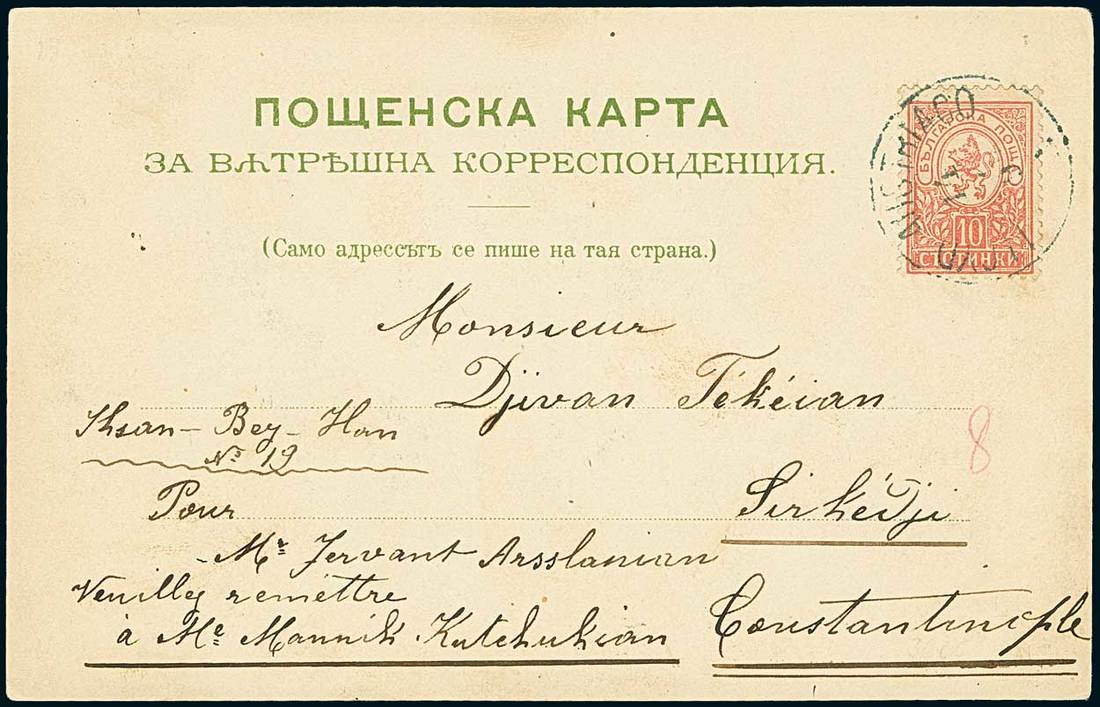 ПОЩЕНСКА КАРТА
ЗА ВѪТРѢШНА КОРРЕСПОНДЕНЦИЯ.
(Само адрессътъ се пише на тая страна.)
БЪЛГАРСКА ПОЩА
10
СТОТИНКИ
Monsieur
Djivan Tékéian
Ihsan-Bey-Han
No 19
8
Pour
Sirkédji
Mr Jervant Arsslanian
Veuillez remettre
à Me Mannik Kutchukian
Constantinople